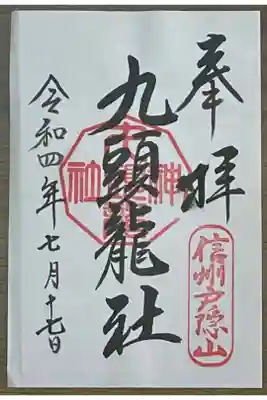 奉拝
信州戸隠山
九頭龍社
令和四年七月十七日